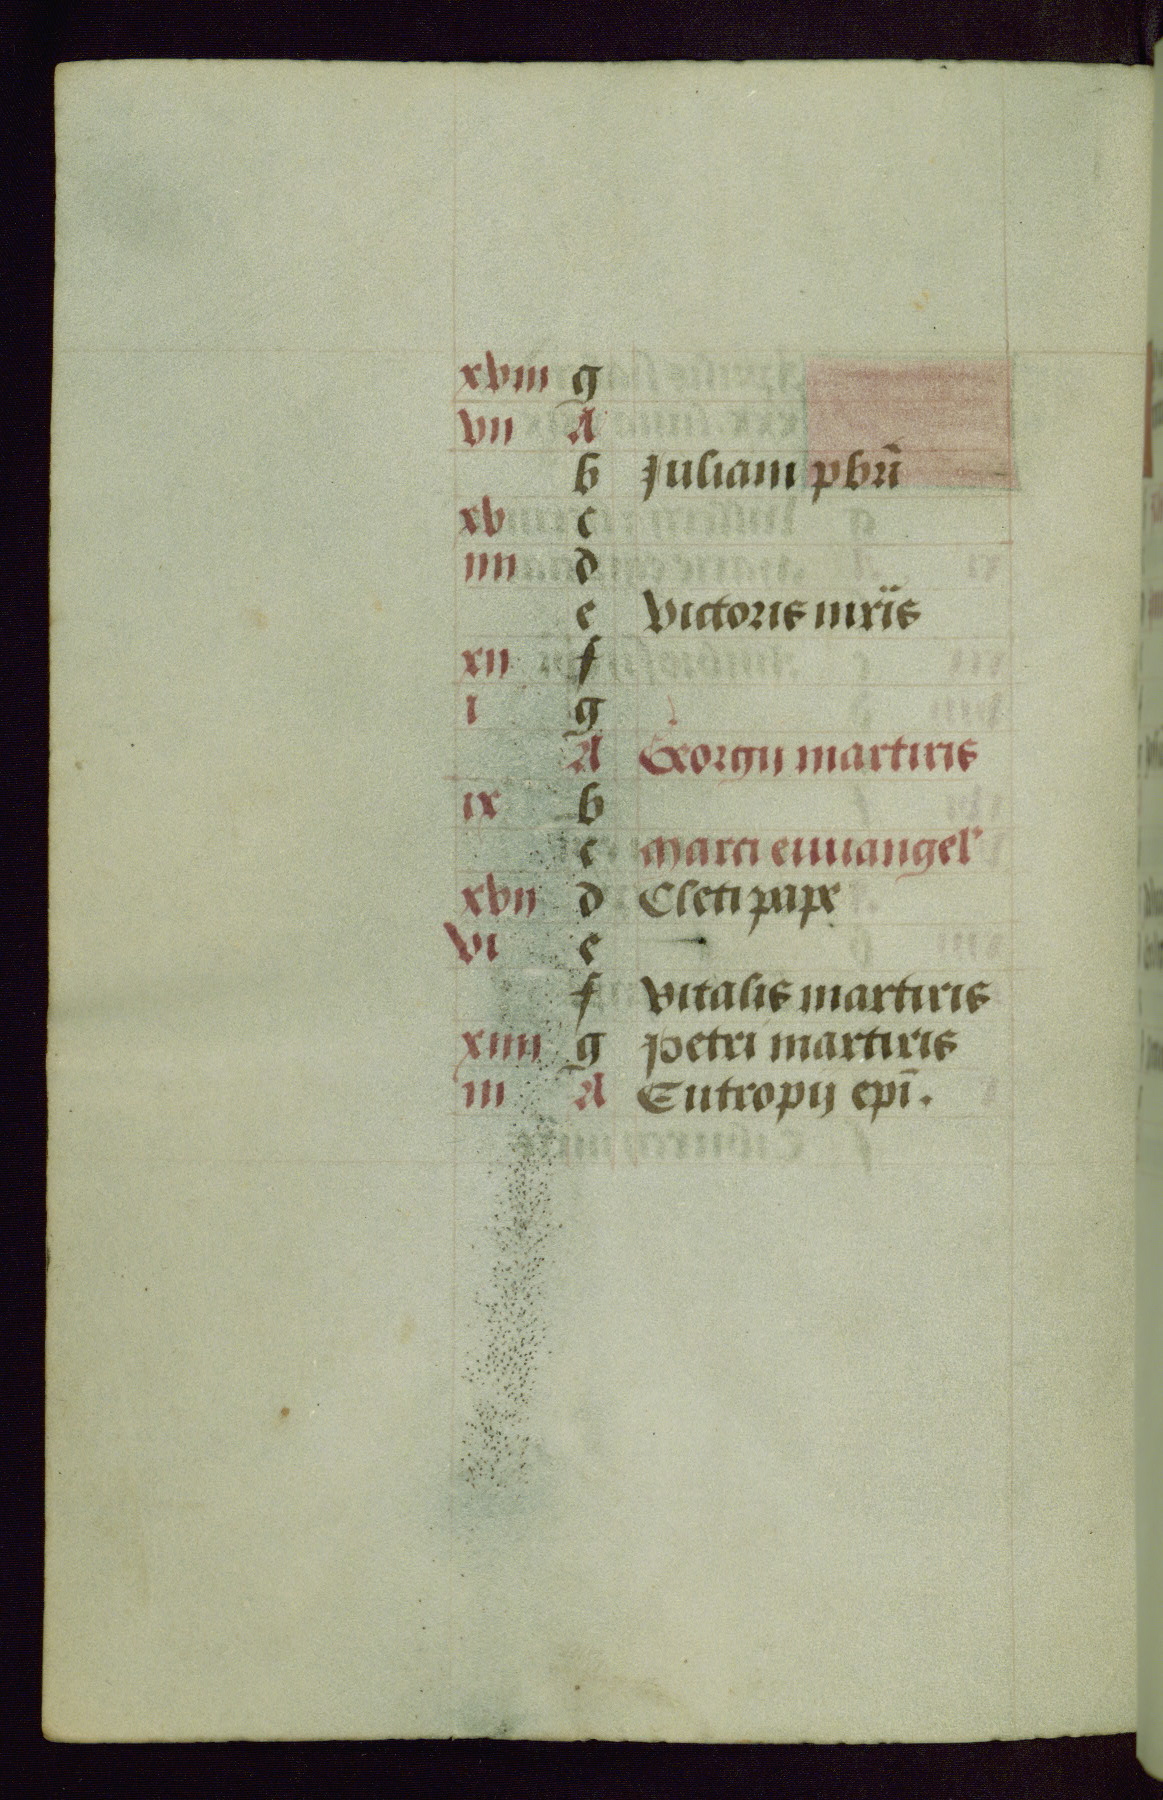 xviii g
vii A
b Juliani pbrī
xv c
iiii d
e Victoris mr̄is
xii f
i g
A Georgij martiris
ix b
c Marci euuangel'
xvij d Cleti pape
vi e
f Vitalis martiris
xiiii g Petri martiris
iii A Eutropij epī.